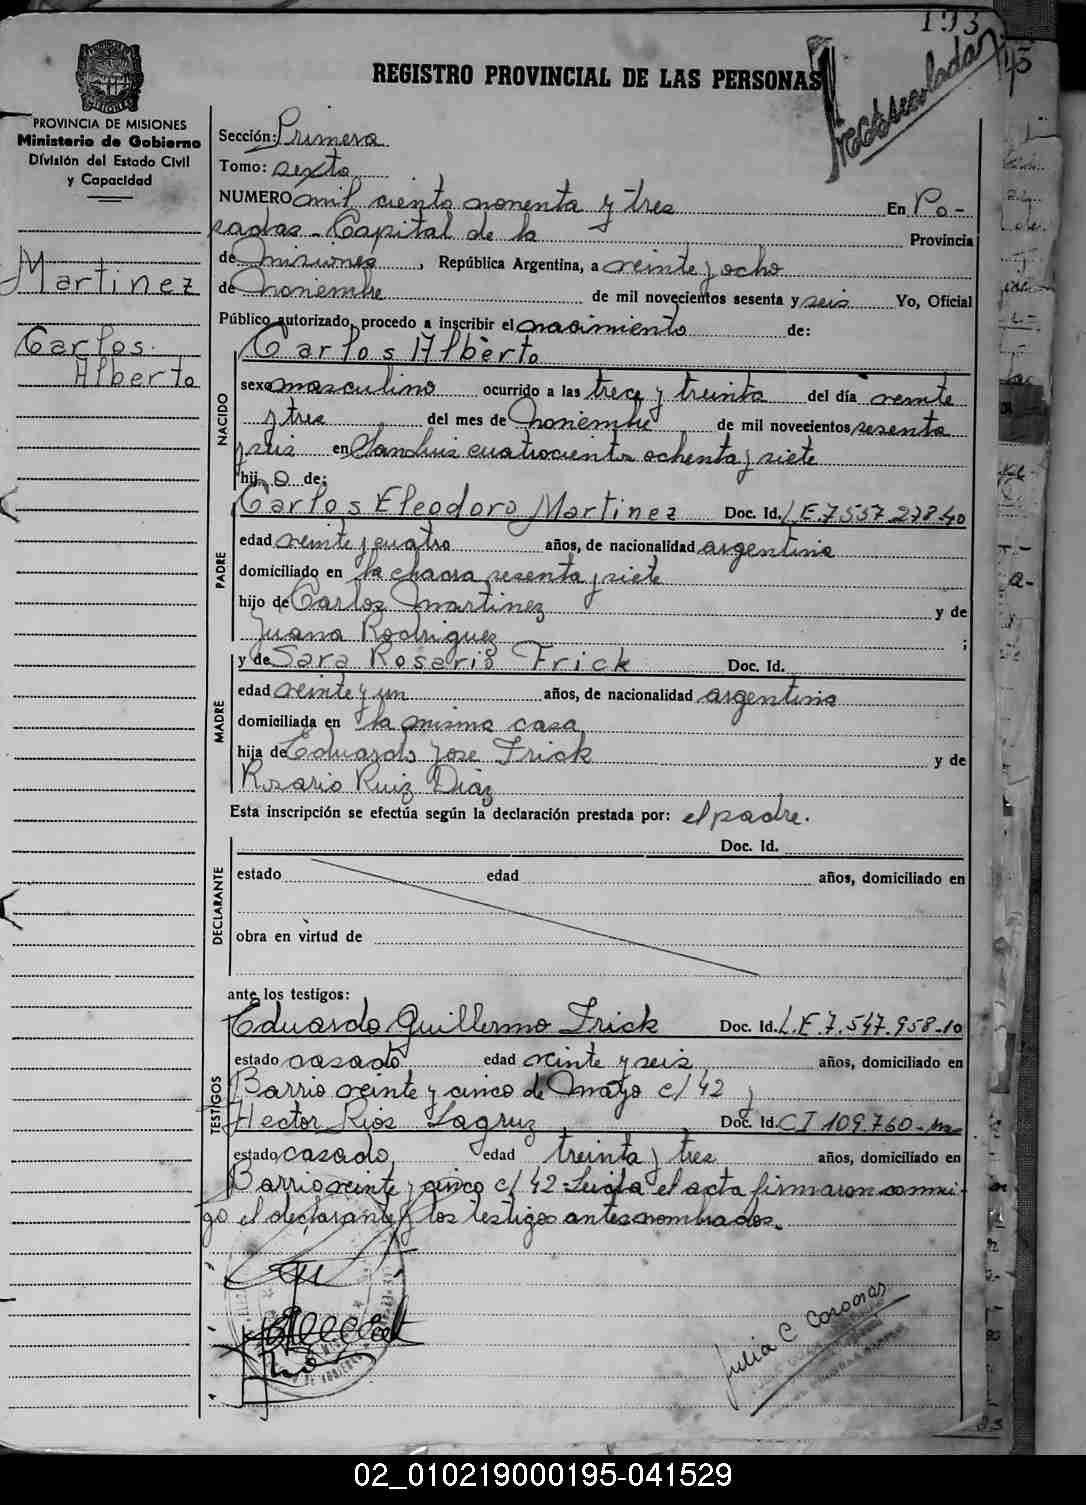 193
REGISTRO PROVINCIAL DE LAS PERSONAS
PROVINCIA DE MISIONES
Ministerio de Gobierno
División del Estado Civil
y Capacidad
Martinez
Carlos
Alberto
Sección: Primera
Tomo: sexto
NUMERO mil ciento nonenta y tres En Po-
sadas - Capital de la Provincia
de Misiones, República Argentina, a veinte y ocho
de noniembre de mil novecientos sesenta y seis Yo, Oficial
Público autorizado, procedo a inscribir el nacimiento de:
NACIDO
Carlos Alberto
sexo masculino ocurrido a las trece y treinta del día veinte
y tres del mes de noniembre de mil novecientos sesenta
y seis en San Luis cuatrocientos ochenta y siete
hijo de:
PADRE
Carlos Eleodoro Martinez Doc. Id. L.E.7.557.278-40
edad veinte y cuatro años, de nacionalidad argentina
domiciliado en la chacra sesenta y siete
hijo de Carlos Martinez y de
Juana Rodriguez ;
MADRE
y de Sara Rosario Frick Doc. Id.
edad veinte y un años, de nacionalidad argentina
domiciliada en la misma casa
hija de Eduardo Jose Frick y de
Rosario Ruiz Diaz
Esta inscripción se efectúa según la declaración prestada por: el padre.
DECLARANTE
Doc. Id.
estado edad años, domiciliado en
obra en virtud de
ante los testigos:
TESTIGOS
Eduardo Guillermo Frick Doc. Id. L.E.7.547.958-10
estado casado edad veinte y seis años, domiciliado en
Barrio veinte y cinco de Mayo c/ 42 y
Hector Rios Lagruz Doc. Id. CI 109.760-
estado casado edad treinta y tres años, domiciliado en
Barrio veinte y cinco c/ 42 - Leida el acta firmaron conmi-
go el declarante y los testigos antes nombrados.
Julia C
02_010219000195-041529